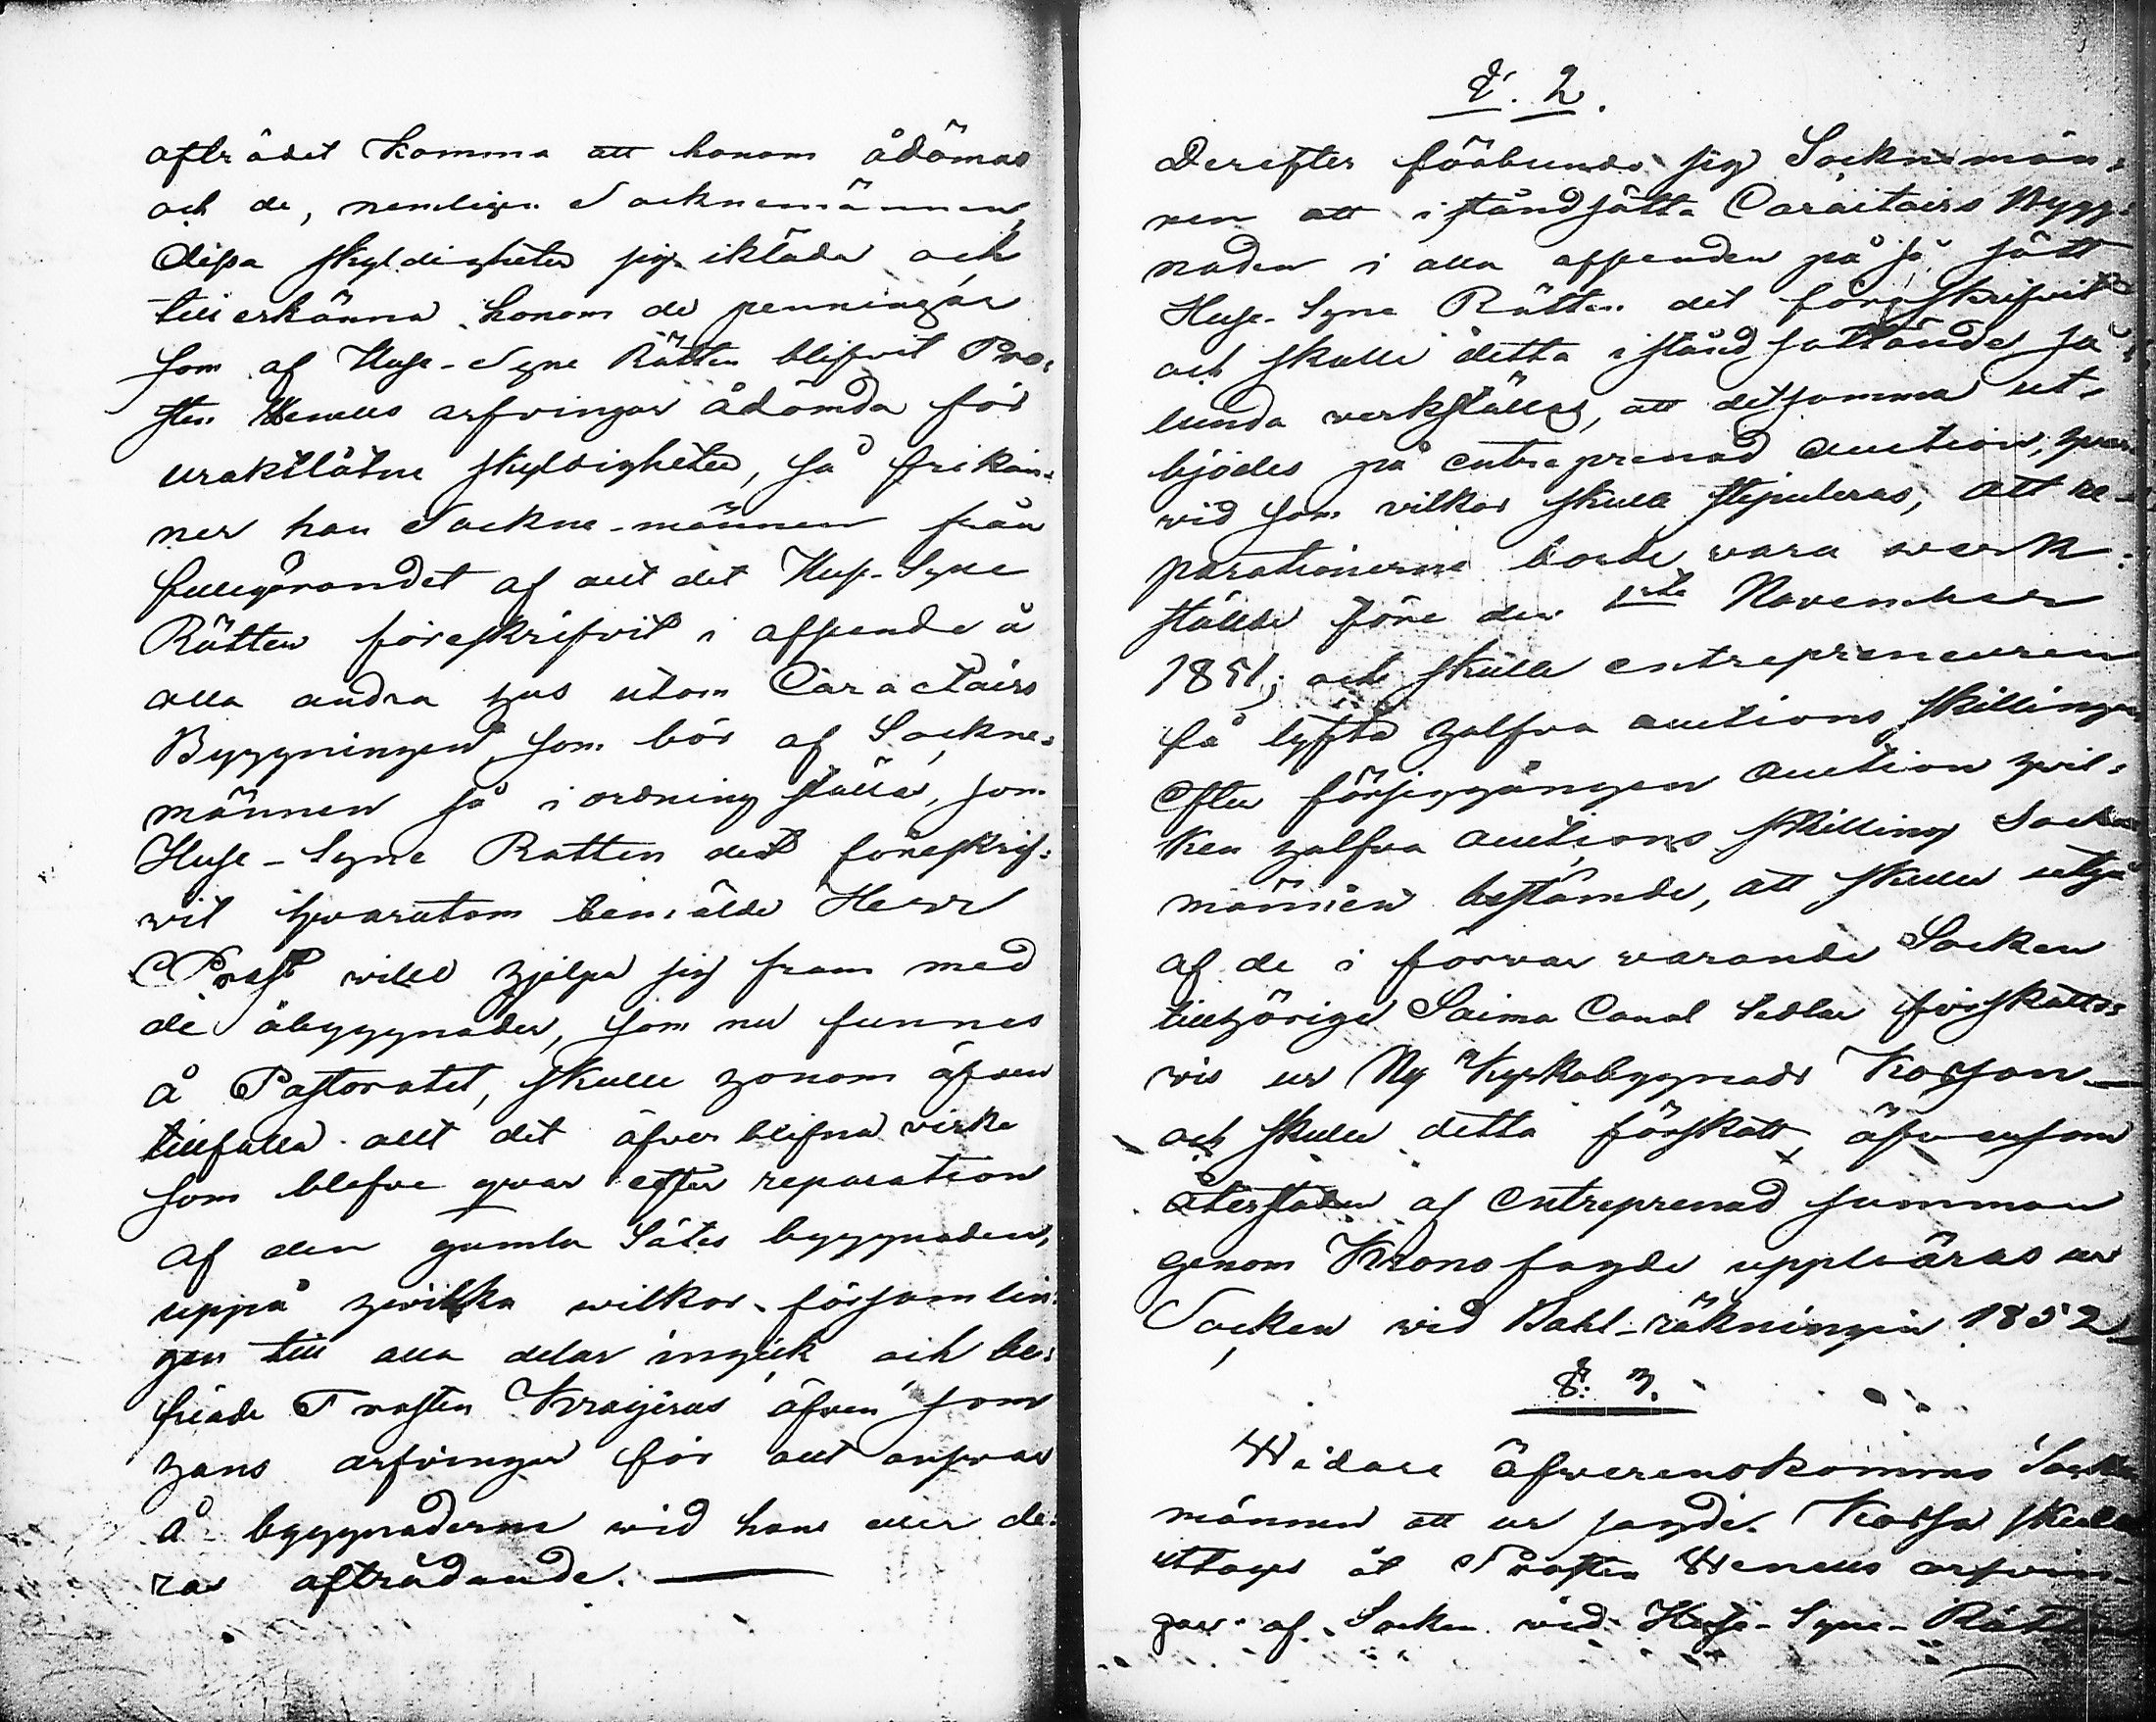 afträdet komma att honom ådömas
och de, nemligen Socknemännen,
dessa skyldigheter sig ikläda och
tillerkänna honom de penningar
som af Huse-Syne Rätten blifvit Pro-
sten Wenells arfvingar ådömda för
uraktlåtne skyldigheter, så frikän-
ner han Sockne-männen från
fullgörandet af allt det Huse-Syne
Rätten föreskrifvit i afseende å
alla andra hus utom Caractairs
Byggningen som bör af Sockne-
männen så i ordning ställa, som
Huse-Syne Rätten det föreskrif-
vit hvarutom bemälde Herr
Prost wille hjelpa sig fram med
de åbyggnader, som nu funnes
å Pastoratet, skulle honom äfven
tillfalla allt det öfverblifna virke
som blefve qvar efter reparation
af den gamla Sätes byggnaden,
uppå hwilka wilkor församlin-
gen till alla delar ingick och be-
friade Prosten Krogerus äfven som
hans arfvingar för allt answar
å byggnaderne wid hans eller de-
ras afträdande.
§. 2.
Derefter förbundo sig Socknemän-
nen att iståndsätta Caractairs Bygg-
naden i alla afseenden på så sätt
Huse-Syne Rätten det föreskrifvit
och skulle detta iståndsättande så-
lunda werkställas, att detsamma ut-
bjödes på entreprenad auction, hvar-
wid som vilkor skulle stipuleras, att re-
parationerne borde vara werk-
ställde före den 1sta November
1851; och skulle entrepreneuren
få lyfta halfva auctions skillingen
efter försiggången auction hvil-
ken halfva auctions skilling Sockne
männen bestämde, att skulle utgå
af de i förvar varande Socken
tillhörige Saima Canal Sedlar förskotts-
vis ur Ny Kyrkobyggnads Kassan
och skulle detta förskott, äfvensom
återstoden af entreprenad summan
genom Kronofogde uppbäras ur
Socken wid Bahl-räkningen 1852
§. 3.
Widare öfverenskommo Sockne
männen att ur sagde Kassa skulle
uttages åt Prosten Wenells arfvin-
gar af Socken wid Huse-Syne-Rätten